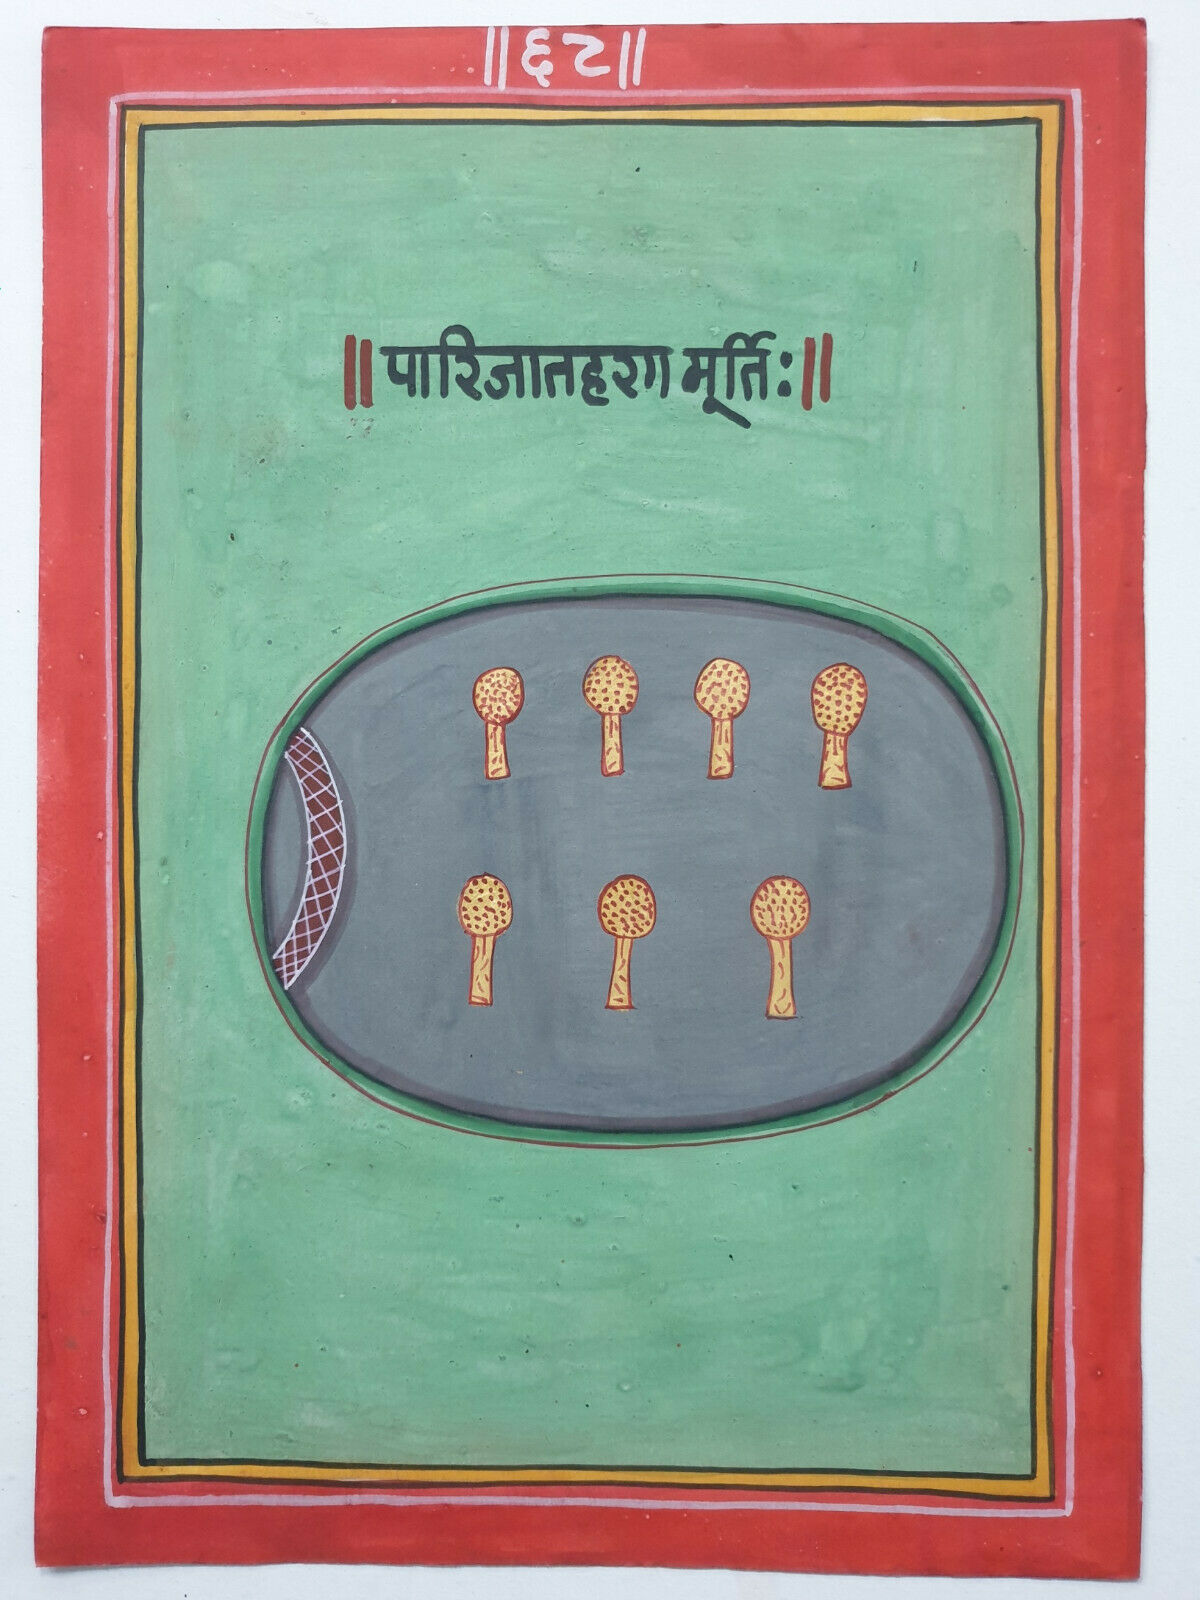 ॥६८॥
॥पारिजातहरण मूर्तिः॥